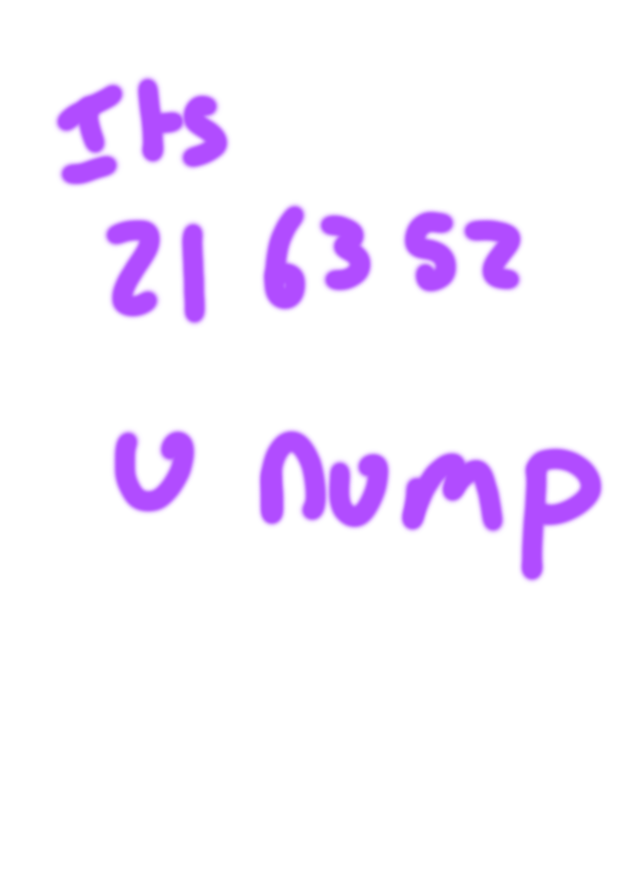 Its
21 63 52
U nump